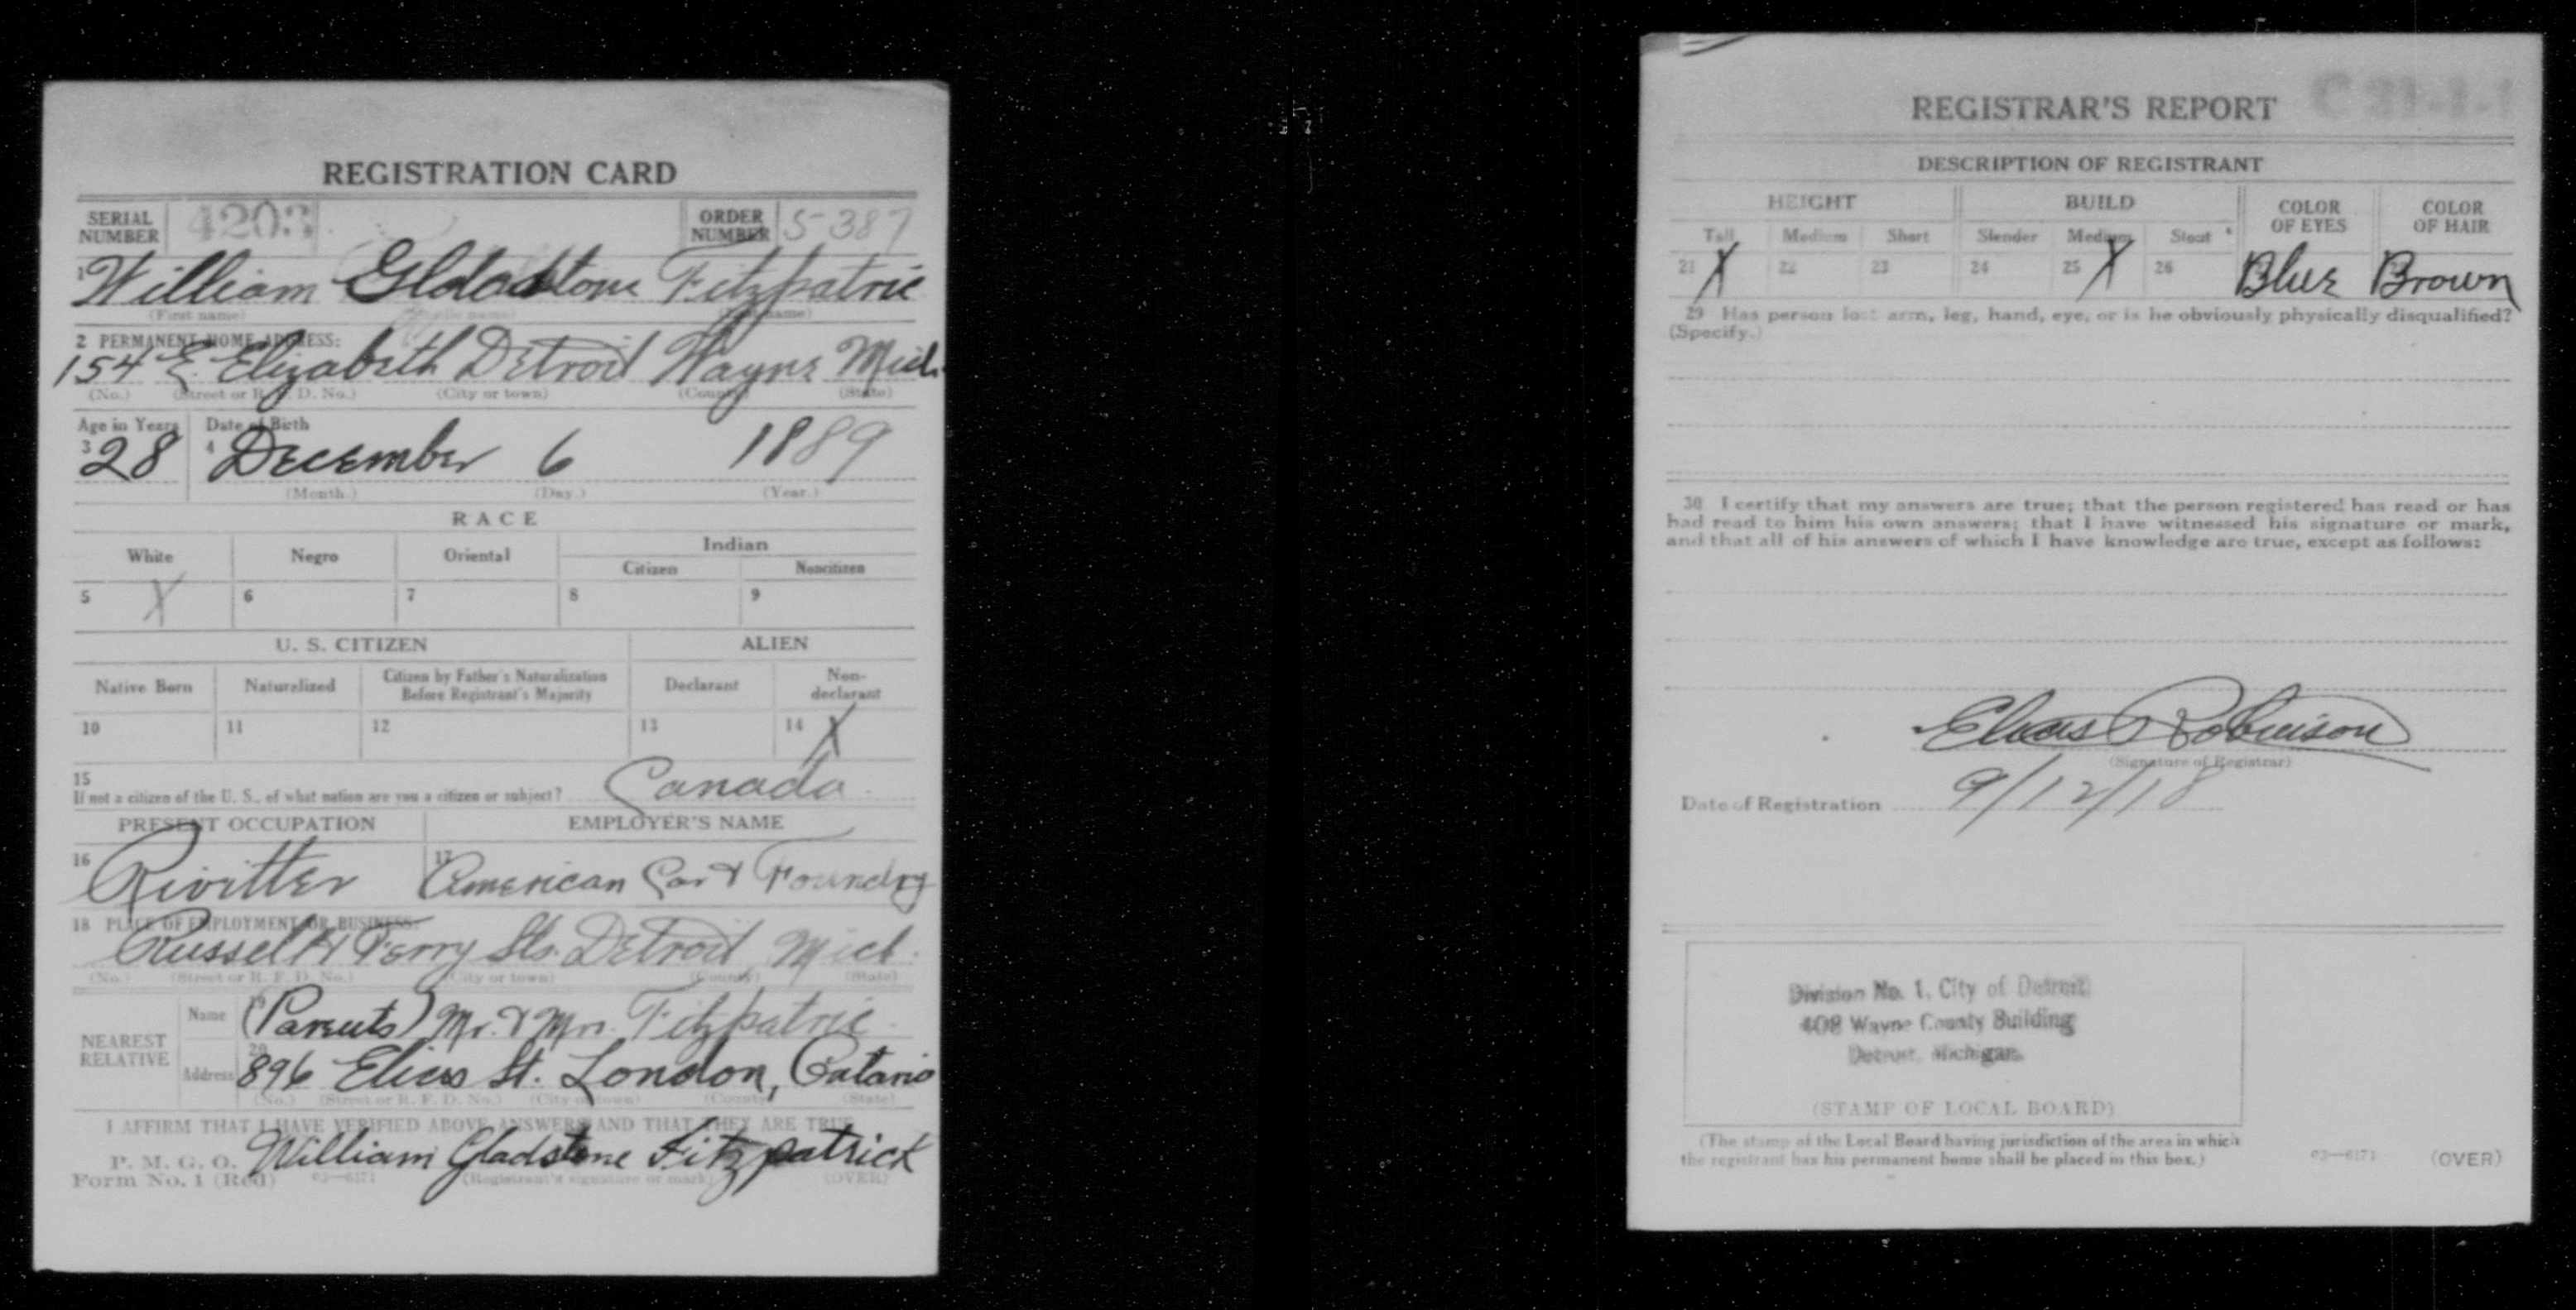 REGISTRATION CARD
SERIAL NUMBER 4203 ORDER NUMBER 5387
1 William Gldadstone Fitzpatric
(First name) (Middle name) (Last name)
2 PERMANENT HOME ADDRESS:
154 E. Elizabeth Detroit Wayne Mich.
(No.) (Street or R. F. D. No.) (City or town) (County) (State)
Age in Years Date of Birth
3 28 4 December 6 1889
(Month.) (Day.) (Year.)
RACE
White Negro Oriental Indian
Citizen Noncitizen
5 X 6 7 8 9
U. S. CITIZEN ALIEN
Native Born Naturalized Citizen by Father's Naturalization Before Registrant's Majority Declarant Non-declarant
10 11 12 13 14 X
15
If not a citizen of the U. S., of what nation are you a citizen or subject? Canada
PRESENT OCCUPATION EMPLOYER'S NAME
16 Rivitter 17 American Car & Foundry
18 PLACE OF EMPLOYMENT OR BUSINESS:
Russel & Ferry Sts. Detroit Mich.
(No.) (Street or R. F. D. No.) (City or town) (County) (State)
NEAREST RELATIVE
Name 19 (Parents) Mr. & Mrs. Fitzpatric
Address 20 896 Elias St. London, Ontario
(No.) (Street or R. F. D. No.) (City or town) (County) (State)
I AFFIRM THAT I HAVE VERIFIED ABOVE ANSWERS AND THAT THEY ARE TRUE
P. M. G. O.
Form No. 1 (Red) 03—6171 William Gladstone Fitzpatrick
(Registrant's signature or mark) (OVER)
C 21-1-1
REGISTRAR'S REPORT
DESCRIPTION OF REGISTRANT
HEIGHT BUILD COLOR OF EYES COLOR OF HAIR
Tall Medium Short Slender Medium Stout
21 X 22 23 24 25 X 26 Blue Brown
29 Has person lost arm, leg, hand, eye, or is he obviously physically disqualified?
(Specify.)
30 I certify that my answers are true; that the person registered has read or has
had read to him his own answers; that I have witnessed his signature or mark,
and that all of his answers of which I have knowledge are true, except as follows:
Elias Robinson
(Signature of Registrar)
Date of Registration 9/12/18
Division No. 1, City of Detroit
408 Wayne County Building
Detroit, Michigan
(STAMP OF LOCAL BOARD)
(The stamp of the Local Board having jurisdiction of the area in which
the registrant has his permanent home shall be placed in this box.)
03—6171 (OVER)